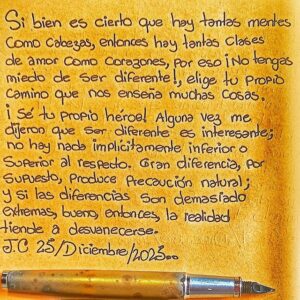 Si bien es cierto que hay tantas mentes
como cabezas, entonces hay tantas clases
de amor como corazones, por eso ¡No tengas
miedo de ser diferente!, elige tu propio
camino que nos enseña muchas cosas.
¡Sé tu propio héroe! Alguna vez me
dijeron que ser diferente es interesante;
no hay nada implícitamente inferior o
superior al respecto. Gran diferencia, por
supuesto, produce precaución natural;
y si las diferencias son demasiado
extremas, bueno, entonces, la realidad
tiende a desvanecerse.
J.C 25/Diciembre/2023...